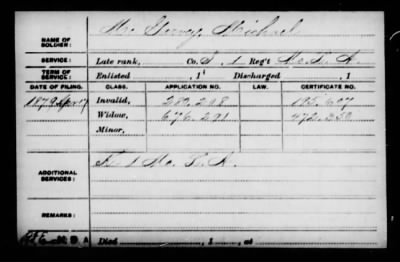 NAME OF SOLDIER: Mc Garvey, Michael
SERVICE: Late rank, Co. I, 1 Reg't Mo. L. A.
TERM OF SERVICE: Enlisted , 1 Discharged , 1
DATE OF FILING. CLASS. APPLICATION NO. LAW. CERTIFICATE NO.
1879 Apr 17 Invalid, 280.208 195.607
Widow, 676.291 472.350
Minor,
ADDITIONAL SERVICES: 1 Mo. L. A.
REMARKS:
Died , 1 , at